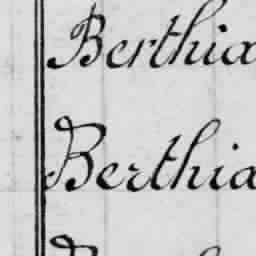 Berthia
Berthia